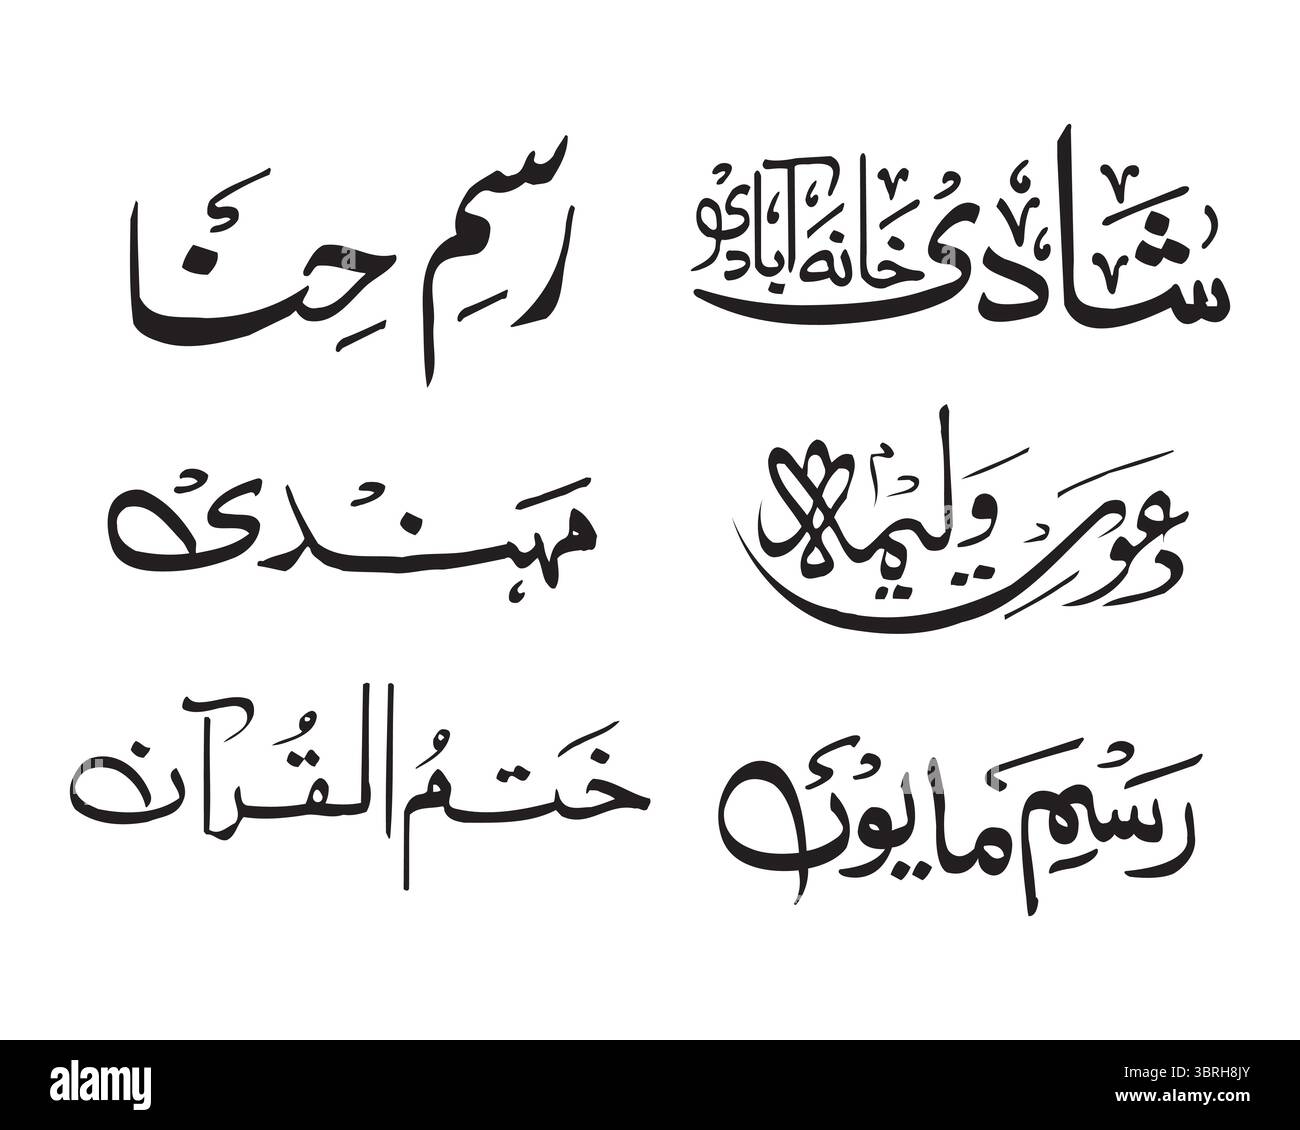 شادی خانہ آبادی
رسمِ حنا
دعوتِ ولیمہ
مہندی
رسمِ مایوں
ختم القرآن
alamy
Image ID: 3BRH8JY
www.alamy.com